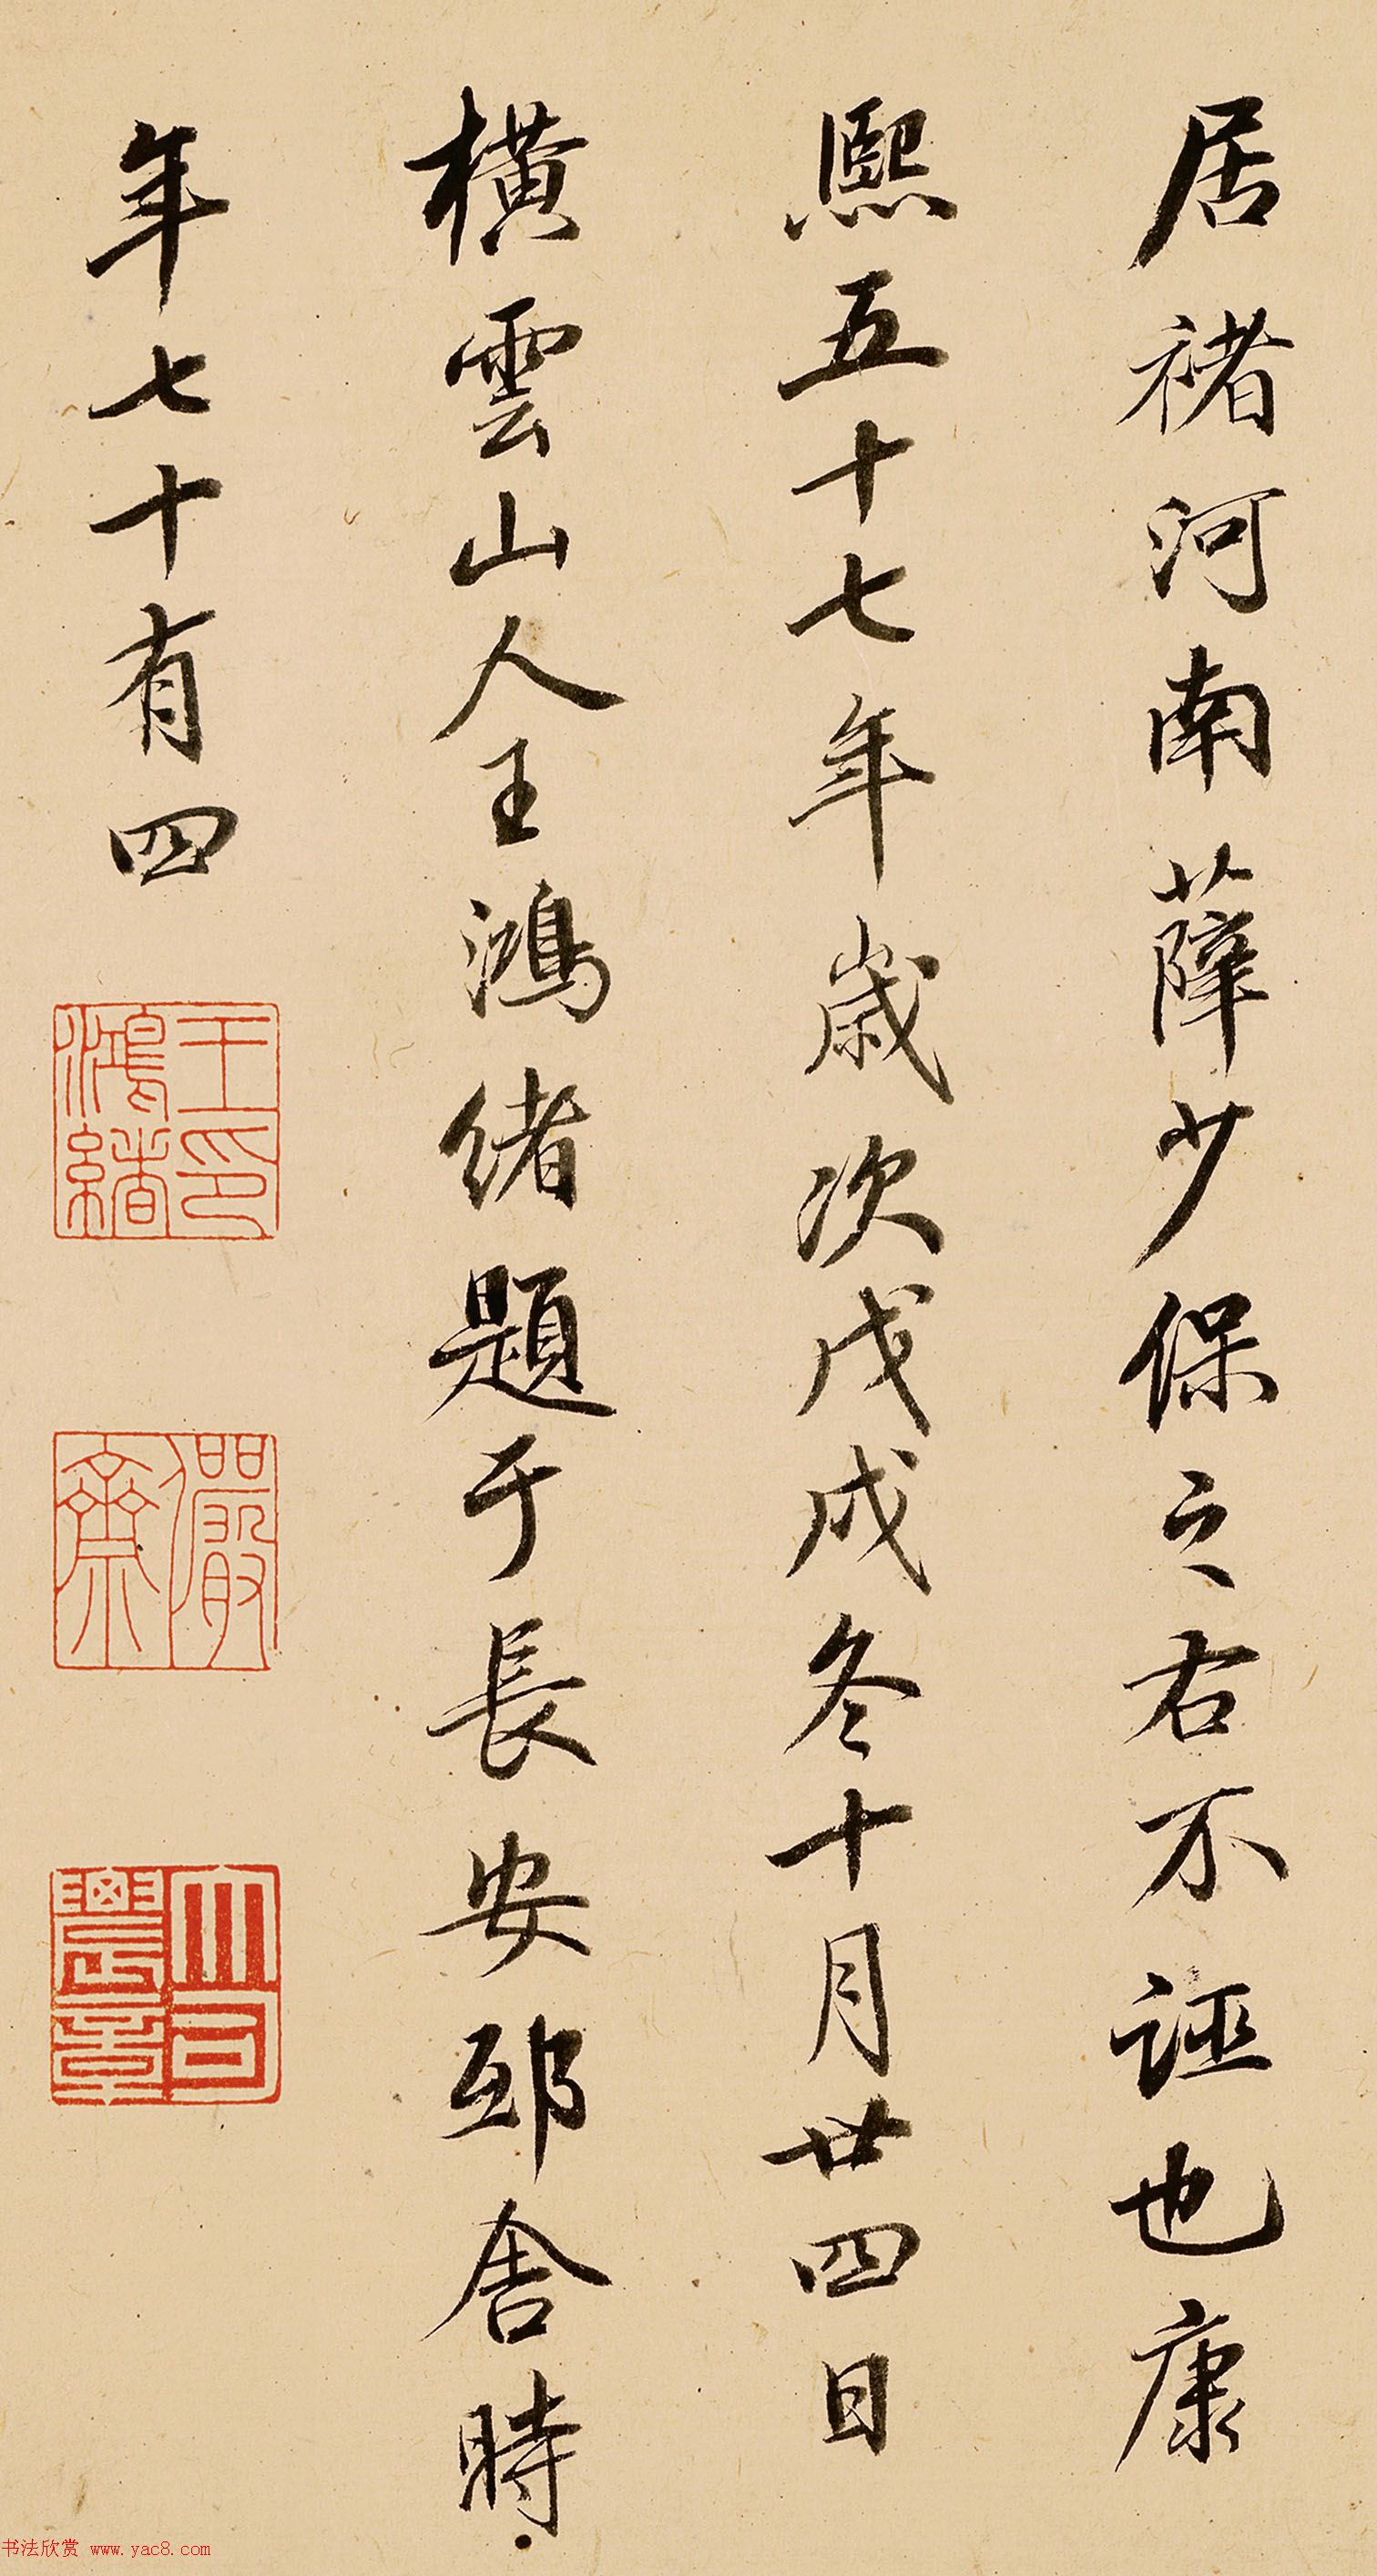 居褚河南薛少保之右不誣也康
熙五十七年歲次戊戌冬十月廿四日
橫雲山人王鴻緒題于長安邸舍時
年七十有四
王鴻緒印
儼齋
大司農章
书法欣赏 www.yac8.com